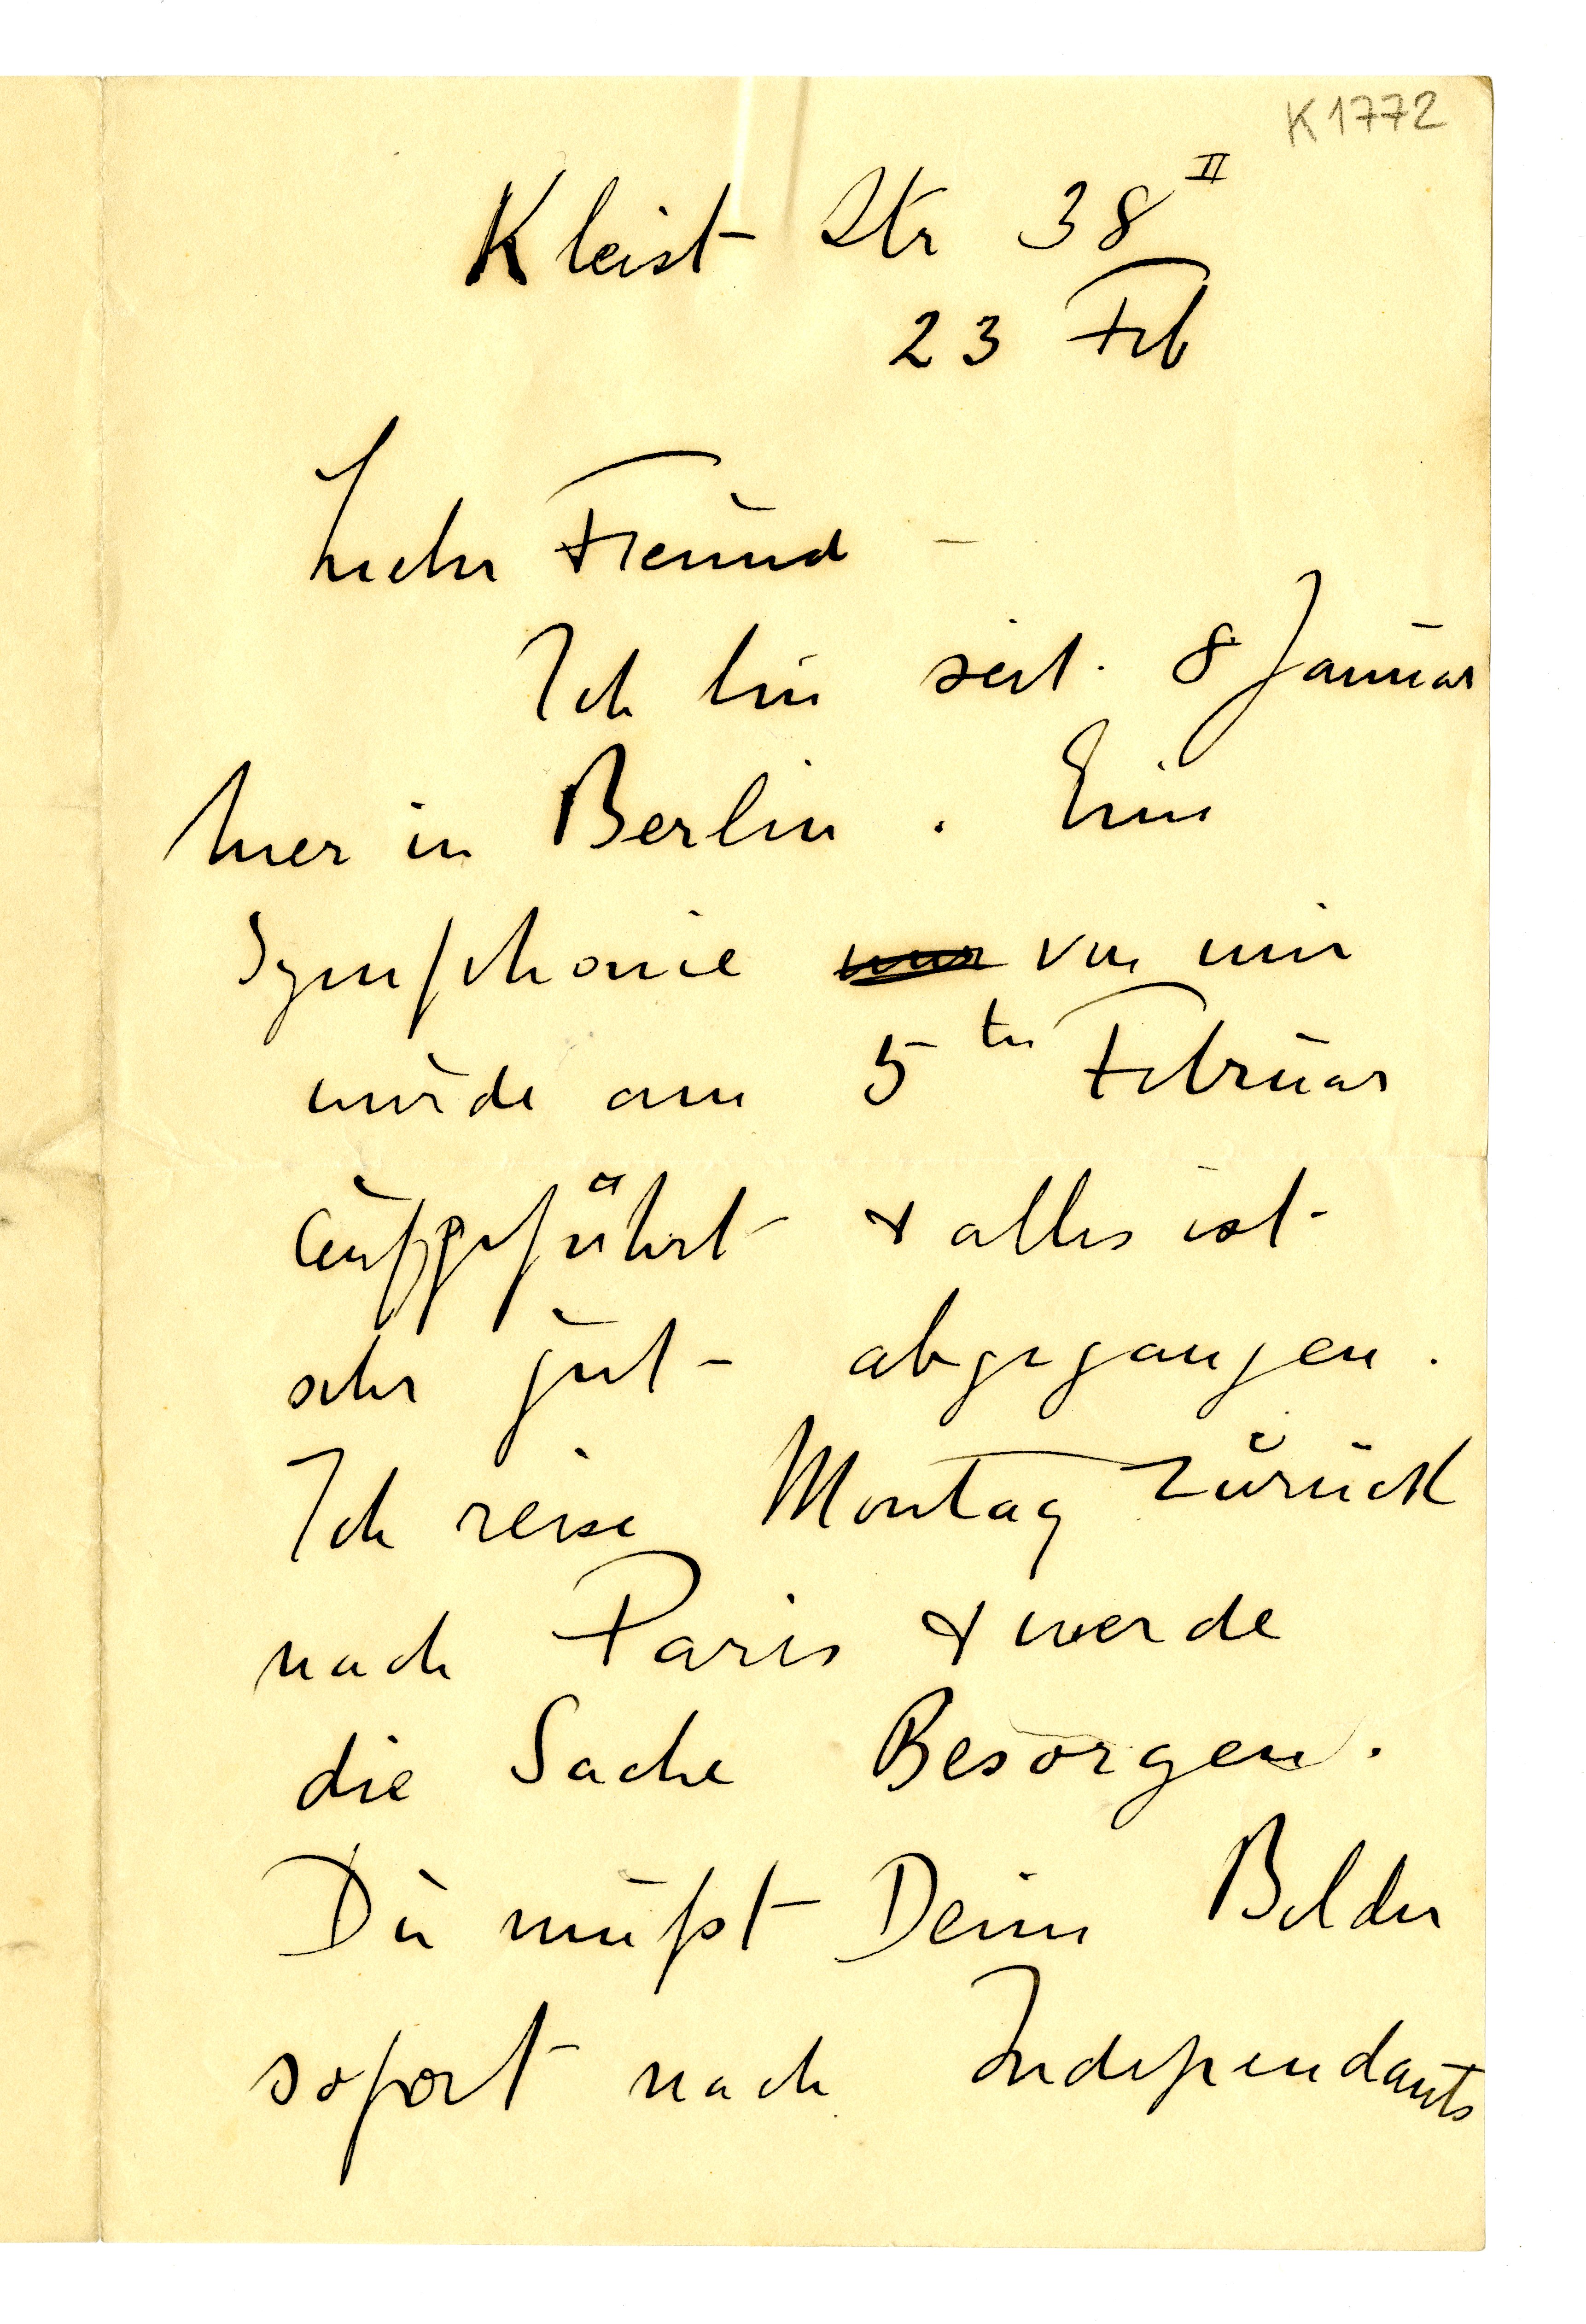 K 1772
Kleist Str 38 II
23 Feb
Lieber Freund –
Ich bin seit 8 Januar
hier in Berlin. Eine
Symphonie von mir
wurde am 5ten Februar
aufgeführt & alles ist
sehr gut abgegangen.
Ich reise Montag zurück
nach Paris & werde
die Sache Besorgen.
Du mußt Deine Bilder
sofort nach Independants